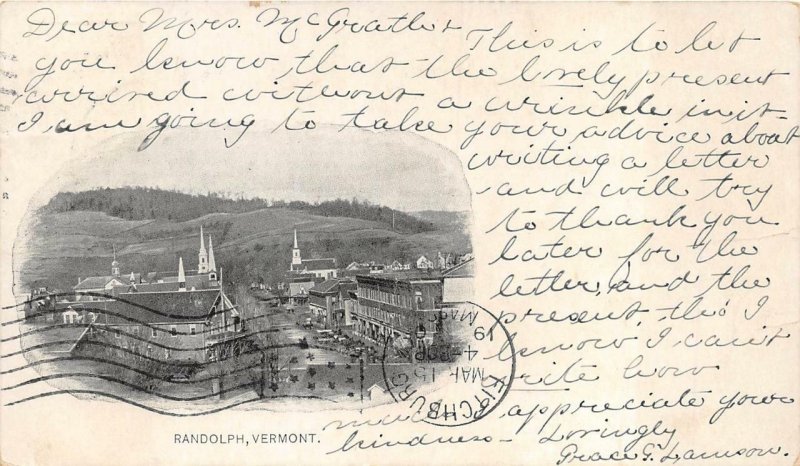 Dear Mrs. McGrath :
This is to let
you know that the lovely present
arrived without a wrinkle in it -
I am going to take your advice about
writing a letter
and will try
to thank you
later for the
letter, and the
present, tho' I
know I can't
write how
much I appreciate your
kindness - Lovingly
Grace G. Lamson.
RANDOLPH, VERMONT.
FITCHBURG
MAR 15
4-30P
19
MAS